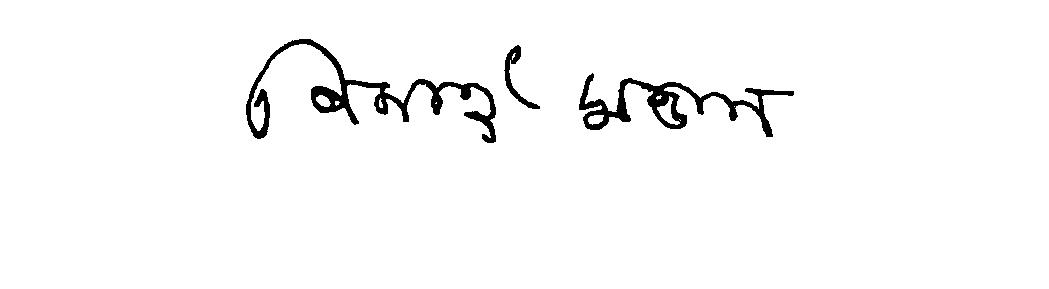 নিমাই মন্ডল